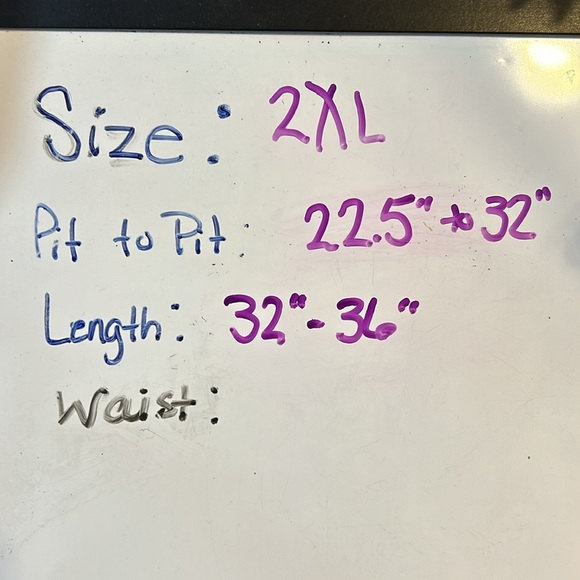 Size: 2XL
Pit to Pit: 22.5" to 32"
Length: 32"-36"
Waist: